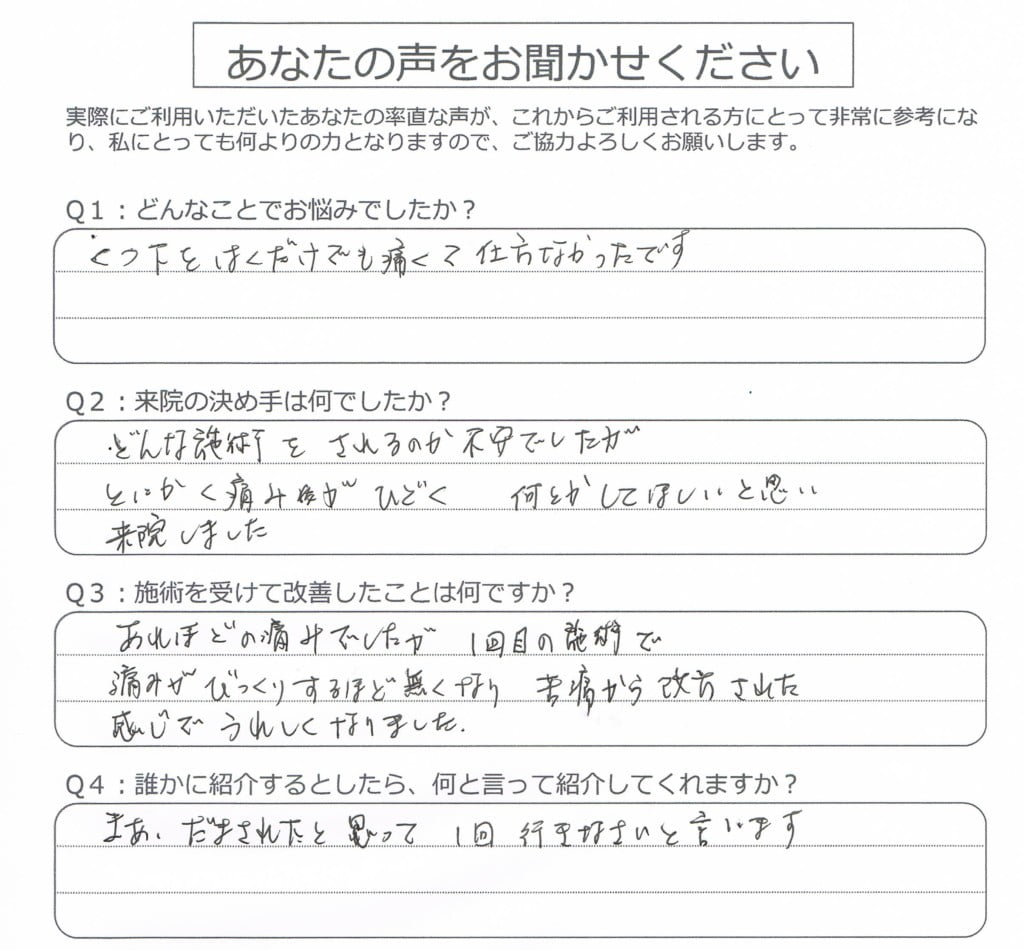 あなたの声をお聞かせください
実際にご利用いただいたあなたの率直な声が、これからご利用される方にとって非常に参考にな
り、私にとっても何よりの力となりますので、ご協力よろしくお願いします。
Q1：どんなことでお悩みでしたか？
くつ下をはくだけでも痛くて仕方なかったです
Q2：来院の決め手は何でしたか？
どんな施術をされるのか不安でしたが
とにかく痛みがひどく 何とかしてほしいと思い
来院しました
Q3：施術を受けて改善したことは何ですか？
あれほどの痛みでしたが 1回目の施術で
痛みがびっくりするほど無くなり 苦痛から された
感じでうれしくなりました.
Q4：誰かに紹介するとしたら、何と言って紹介してくれますか？
まあ、だまされたと思って 1回 行きなさいと言います